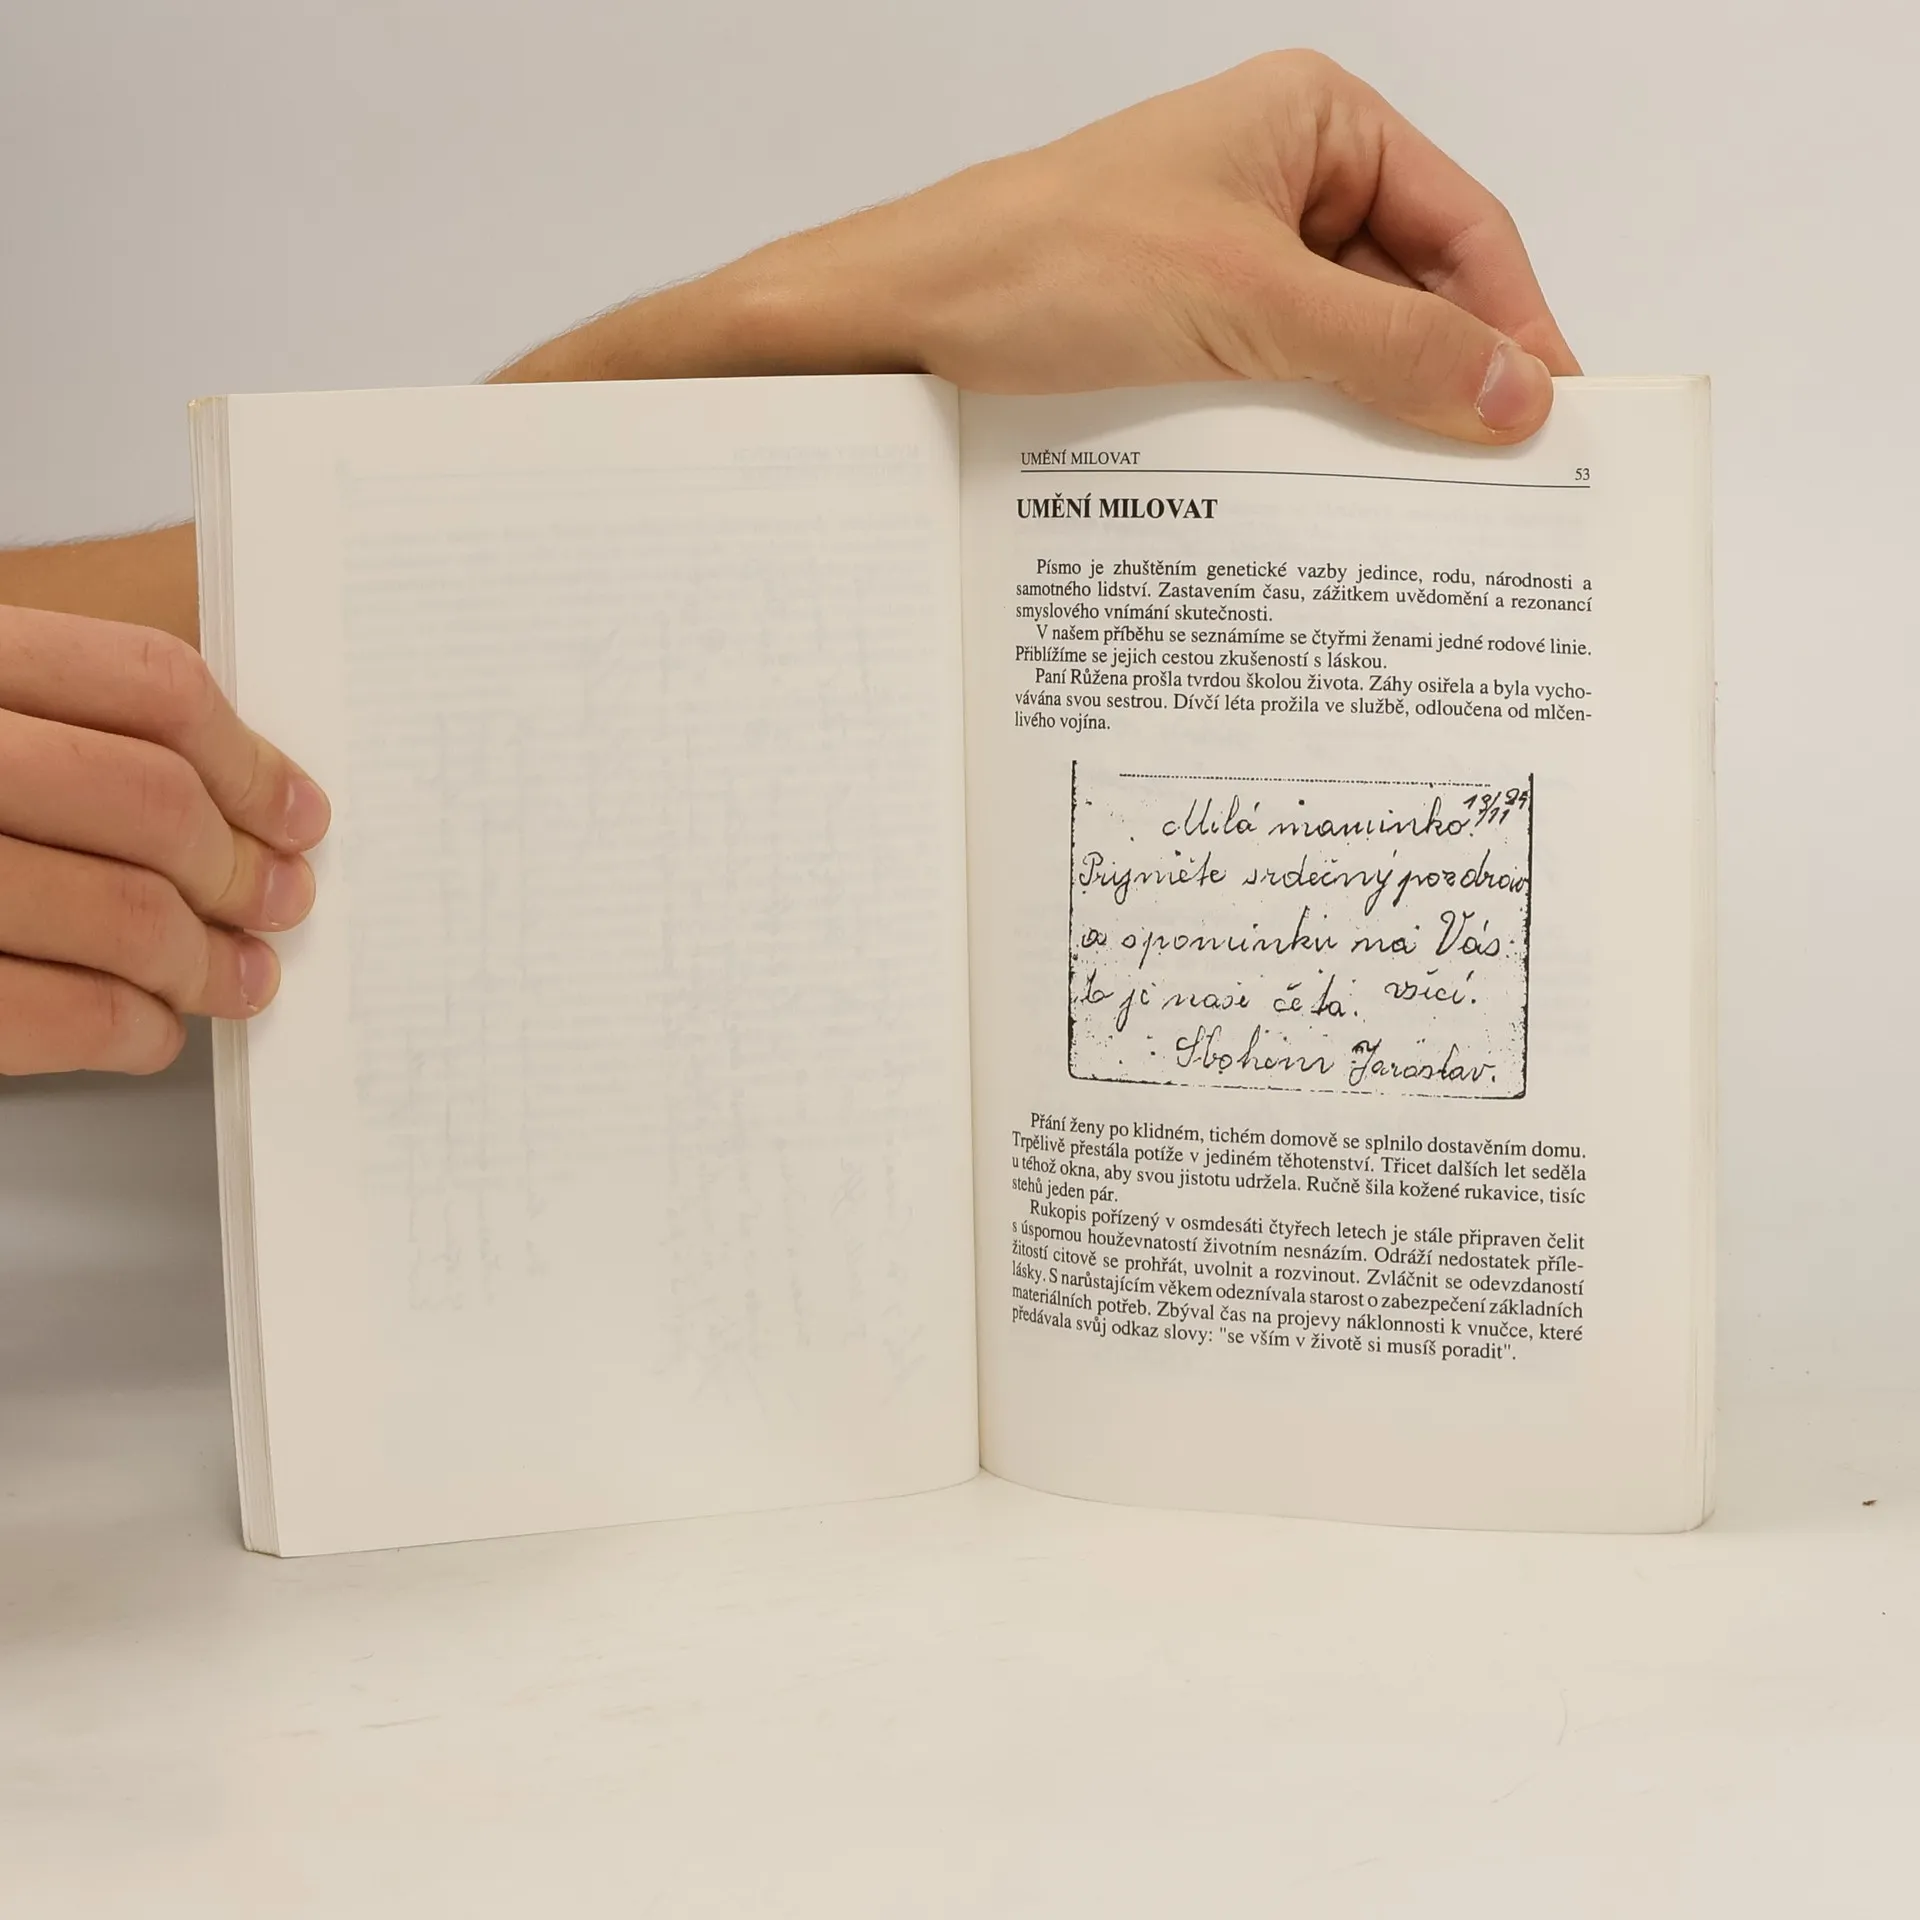 UMĚNÍ MILOVAT
53
UMĚNÍ MILOVAT
Písmo je zhuštěním genetické vazby jedince, rodu, národnosti a
samotného lidství. Zastavením času, zážitkem uvědomění a rezonancí
smyslového vnímání skutečnosti.
V našem příběhu se seznámíme se čtyřmi ženami jedné rodové linie.
Přiblížíme se jejich cestou zkušeností s láskou.
Paní Růžena prošla tvrdou školou života. Záhy osiřela a byla vycho-
vávána svou sestrou. Dívčí léta prožila ve službě, odloučena od mlčen-
livého vojína.
Milá maminko!
Prijměte srdečný pozdrav
a spominku na Vás
to je naše četa. všici.
Sbohem Jaroslav.
Přání ženy po klidném, tichém domově se splnilo dostavěním domu.
Trpělivě přestála potíže v jediném těhotenství. Třicet dalších let seděla
u téhož okna, aby svou jistotu udržela. Ručně šila kožené rukavice, tisíc
stehů jeden pár.
Rukopis pořízený v osmdesáti čtyřech letech je stále připraven čelit
s úspornou houževnatostí životním nesnázím. Odráží nedostatek příle-
žitostí citově se prohřát, uvolnit a rozvinout. Zvláčnit se odevzdaností
lásky. S narůstajícím věkem odeznívala starost o zabezpečení základních
materiálních potřeb. Zbýval čas na projevy náklonnosti k vnučce, které
předávala svůj odkaz slovy: "se vším v životě si musíš poradit".